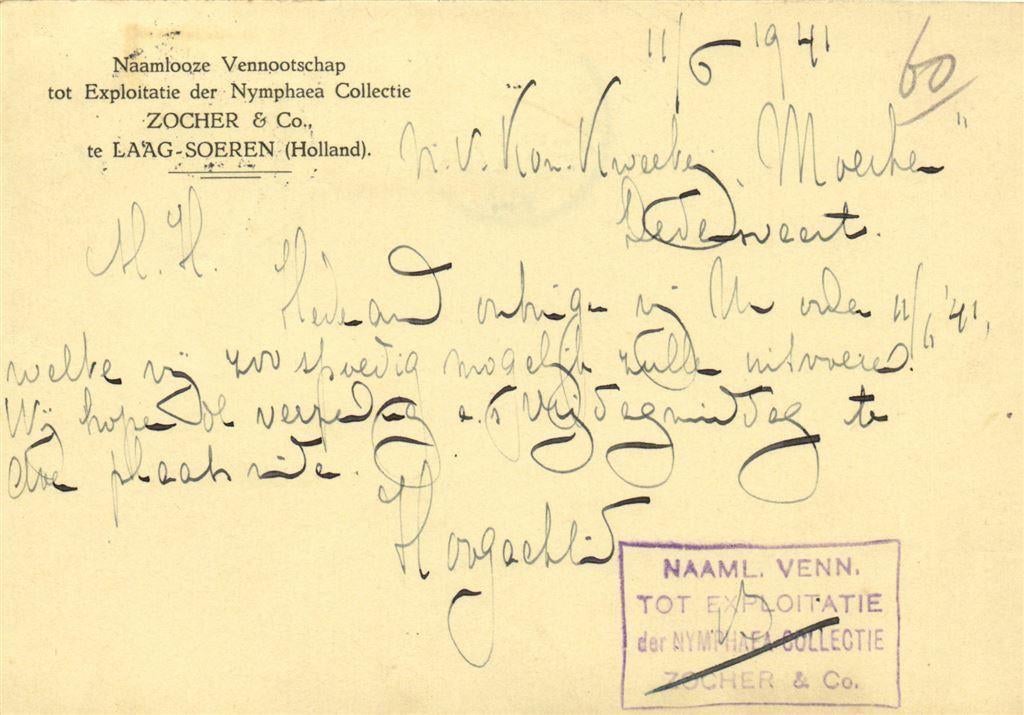 Naamlooze Vennootschap
tot Exploitatie der Nymphaea Collectie
ZOCHER & Co.,
te LAAG-SOEREN (Holland).
11/6 1941
60
N.V. Kon. Kweekerij „Moerheim"
Dedemsvaart.
M. H.
Hedenavond ontvingen wij Uw order 11/6 '41,
welke wij zoo spoedig mogelijk zullen uitvoeren.
Wij hopen de verzending a.s Vrijdagmiddag te
doen plaats vinden.
Hoogachtend
NAAML. VENN.
TOT EXPLOITATIE
der NYMPHAEA COLLECTIE
ZOCHER & Co.